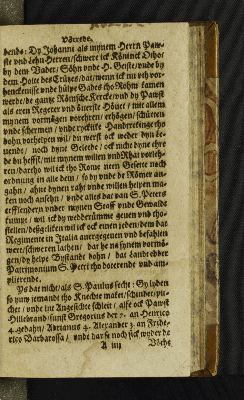 Vörrede.
dends: Dy Johanni als mynem Herrn Paw-
ste vnd Zehn Herren/schwere ick Köninck Otho/
by dem Vader/ Söhn vnde H. Geiste/vnde by
dem Holte des Crützes/dat/wenn ick nu vth vor-
henckenisse vnde hülpe Gades tho Rohm kamen
werde/de gantze Römische Kercke/vnd dy Pawst
als eren Regerer vnd överste Höuet/ mit allem
mynem vormögen vorehren/ erhögen/ schütten
vnde schermen/ vnde rycklike Handrekinge tho
dohn vorhelpen wil/ du werst ock weder dyn Le-
uende/ noch dyne Geleede/ ock nicht dyne ehre
de du heffst/ mit mynem willen vnd Rhat vorleh-
ren/dartho wil ick tho Rome nein Gesette noch
ordnung in alle dem/ so dy vnde de Römer an-
gahn/ ahne dynen raht vnde willen helpen ma-
ken noch ansehn/ vnde alles dat van S. Peters
erffienderen vnder mynen Gewalt vnde Gewalde
kumpt/ wil ick dy wedderümme geuen vnd tho-
stellen/ desgeliken wil ick ock einen jeden/dem dat
Regiment in Italia auergegeuen vnd befahlen
wert/schweren lathen/ dat he na synem vormö-
gen/dy helpe Bystande dohn/ dat Land edder
Patrimonium S. Petri tho vorerende vnd am-
plierende.
Ys dat nicht/ als S. Paulus secht: Gy lyden
so yuw jemandt tho Knechte maket/schindet/pü-
chet/ vnde int Angesichte schleit/ alse ock Pawst
Hillebrand/sünst Gregorius der 7. an Heinrico
4. gedahn/ Adrianus 4. Alexander 3. an Fride-
rico Barbarossa/ vnde darff noch sick wyder de
A iiij Böchs